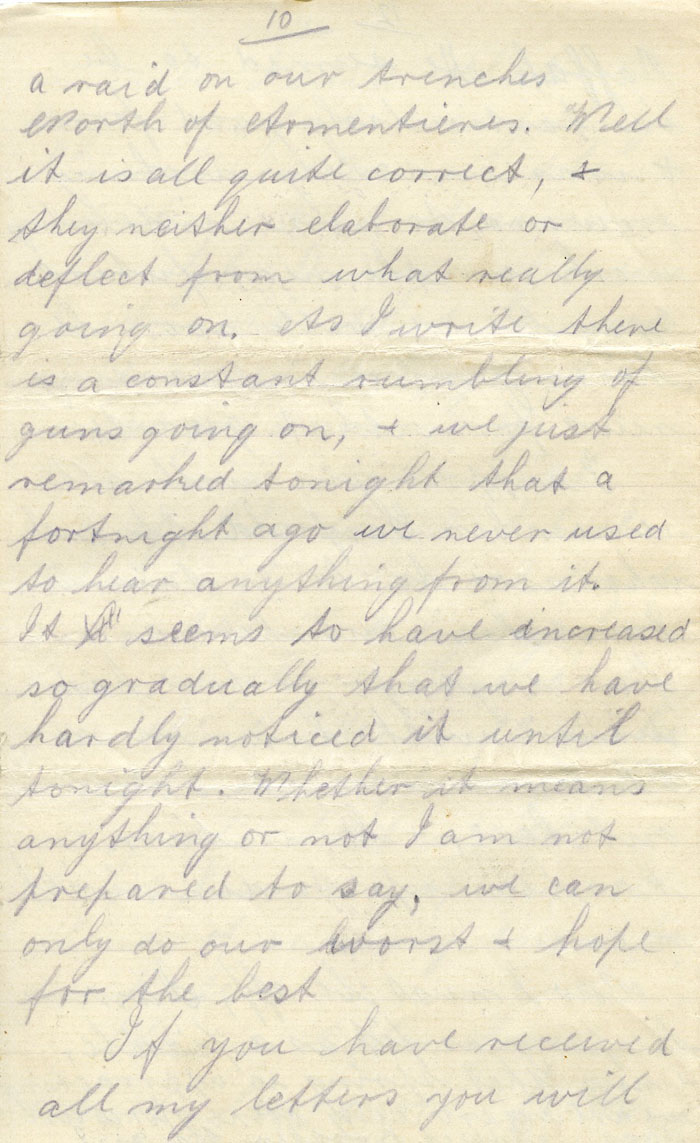 10
a raid on our trenches
North of Armentieres. Well
it is all quite correct, &
they neither elaborate or
deflect from what really
going on. As I write there
is a constant rumbling of
guns going on, & we just
remarked tonight that a
fortnight ago we never used
to hear anything from it.
It seems to have increased
so gradually that we have
hardly noticed it until
tonight. Whether it means
anything or not I am not
prepared to say, we can
only do our worst & hope
for the best
If you have received
all my letters you will